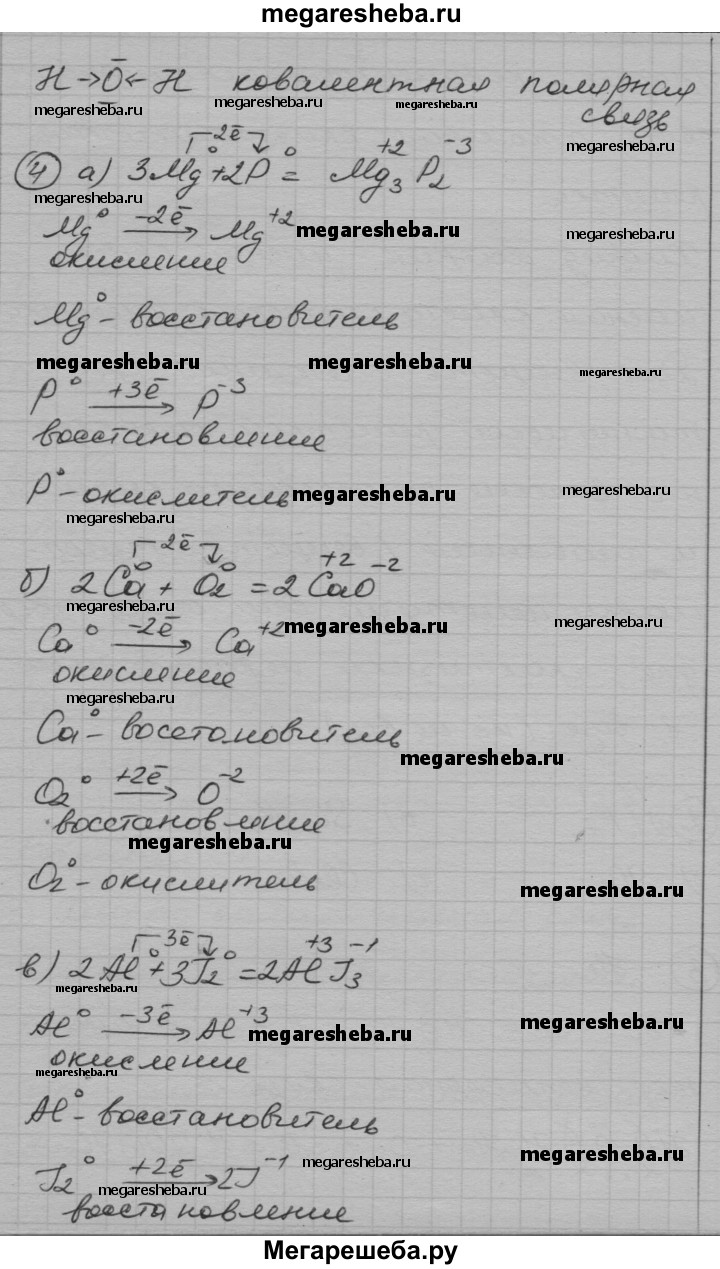 megaresheba.ru
H→O←H ковалентная полярная
megaresheba.ru megaresheba.ru megaresheba.ru
связь
megaresheba.ru
2ē
4 а) 3Mg⁰+2P⁰ = Mg₃⁺²P₂⁻³
megaresheba.ru
Mg⁰ –2ē→ Mg⁺² megaresheba.ru megaresheba.ru
окисление
Mg⁰ – восстановитель
megaresheba.ru megaresheba.ru megaresheba.ru
P⁰ +3ē→ P⁻³
восстановление
P⁰ – окислитель megaresheba.ru megaresheba.ru
megaresheba.ru
2ē
б) 2Ca⁰ + O₂⁰ = 2Ca⁺²O⁻²
megaresheba.ru
Ca⁰ –2ē→ Ca⁺² megaresheba.ru megaresheba.ru
окисление
megaresheba.ru
Ca⁰ – восстановитель
megaresheba.ru
O₂⁰ +2ē→ O⁻²
восстановление
megaresheba.ru
O₂⁰ – окислитель megaresheba.ru
3ē
в) 2Al⁰+3J₂⁰ = 2Al⁺³J₃⁻¹
megaresheba.ru
Al⁰ –3ē→ Al⁺³ megaresheba.ru megaresheba.ru
окисление
megaresheba.ru
Al⁰ – восстановитель
megaresheba.ru
J₂⁰ +2ē→ 2J⁻¹ megaresheba.ru
megaresheba.ru
восстановление
Мегарешеба.ру